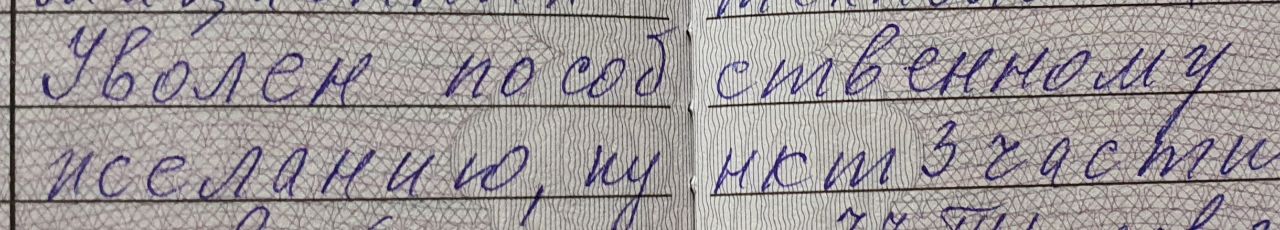 Уволен по собственному
желанию, пункт 3 части